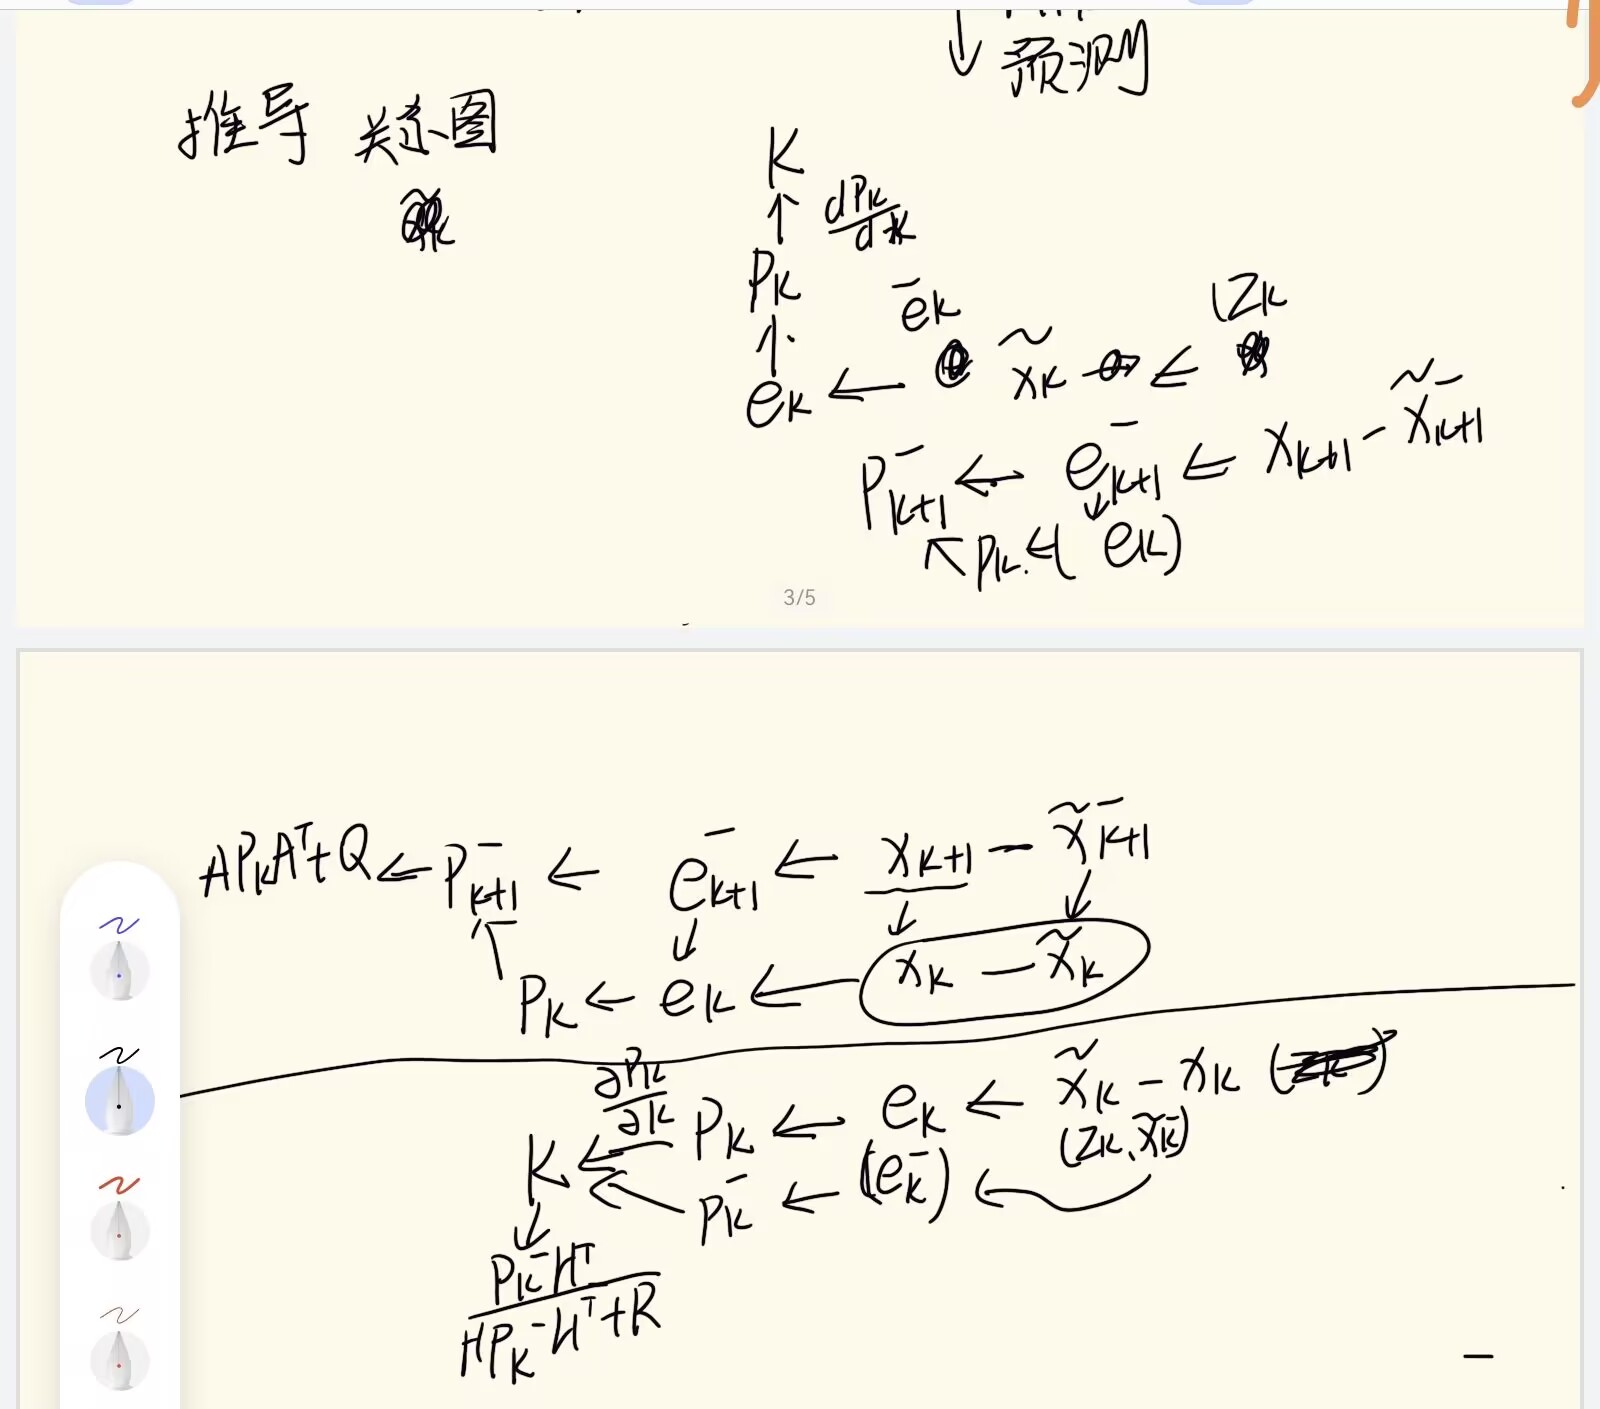 预测
推导 关系图
K
↑ dPk/dk
Pk
↑ ēk (Zk
ek ← x̃k ←
P⁻k+1 ← e⁻k+1 ← xk+1 - x̃⁻k+1
↖ Pk ← ( ek)
3/5
APkAᵀ+Q ← P⁻k+1 ← e⁻k+1 ← xk+1 - x̃⁻k+1
Pk ← ek ← xk - x̃k
K ← ∂Pk/∂k Pk ← ek ← x̃k - xk
(Zk, x̃⁻k)
P⁻k ← (e⁻k)
↓
Pk⁻Hᵀ
HPk⁻Hᵀ+R